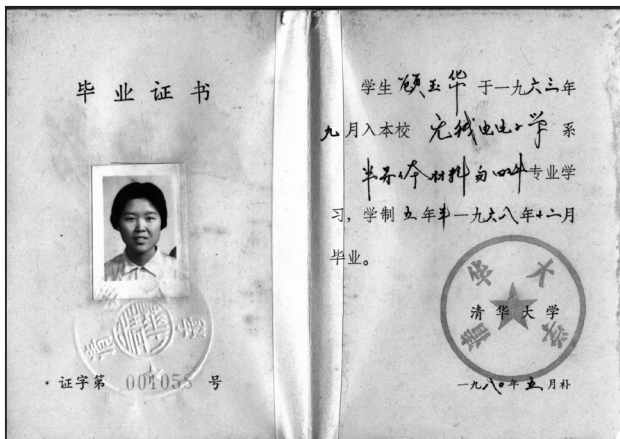 毕业证书
证字第 001058 号
学生 顾玉华 于一九六三年
九月入本校 无线电电子学 系
半导体材料与 专业学
习，学制五年半一九六八年十二月
毕业。
清华大学
清华大学
一九八〇年五月补